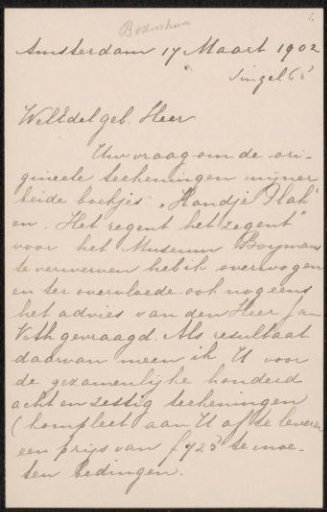 Bodenheim
1.
Amsterdam 17 Maart 1902
Singel 63
WelEdelgeb. Heer
Uw vraag om de ori-
gineele teekeningen mijner
beide boekjes: „Handje Plak"
en „Het regent het zegent"
voor het Museum Boymans
te verwerven heb ik overwogen
en ter overvloede ook nog eens
het advies van den Heer Jan
Veth gevraagd. Als resultaat
daarvan meen ik U voor
de gezamenlijke honderd
acht en zestig teekeningen
(kompleet aan U af te leveren
een prijs van f 725 te moe-
ten bedingen.